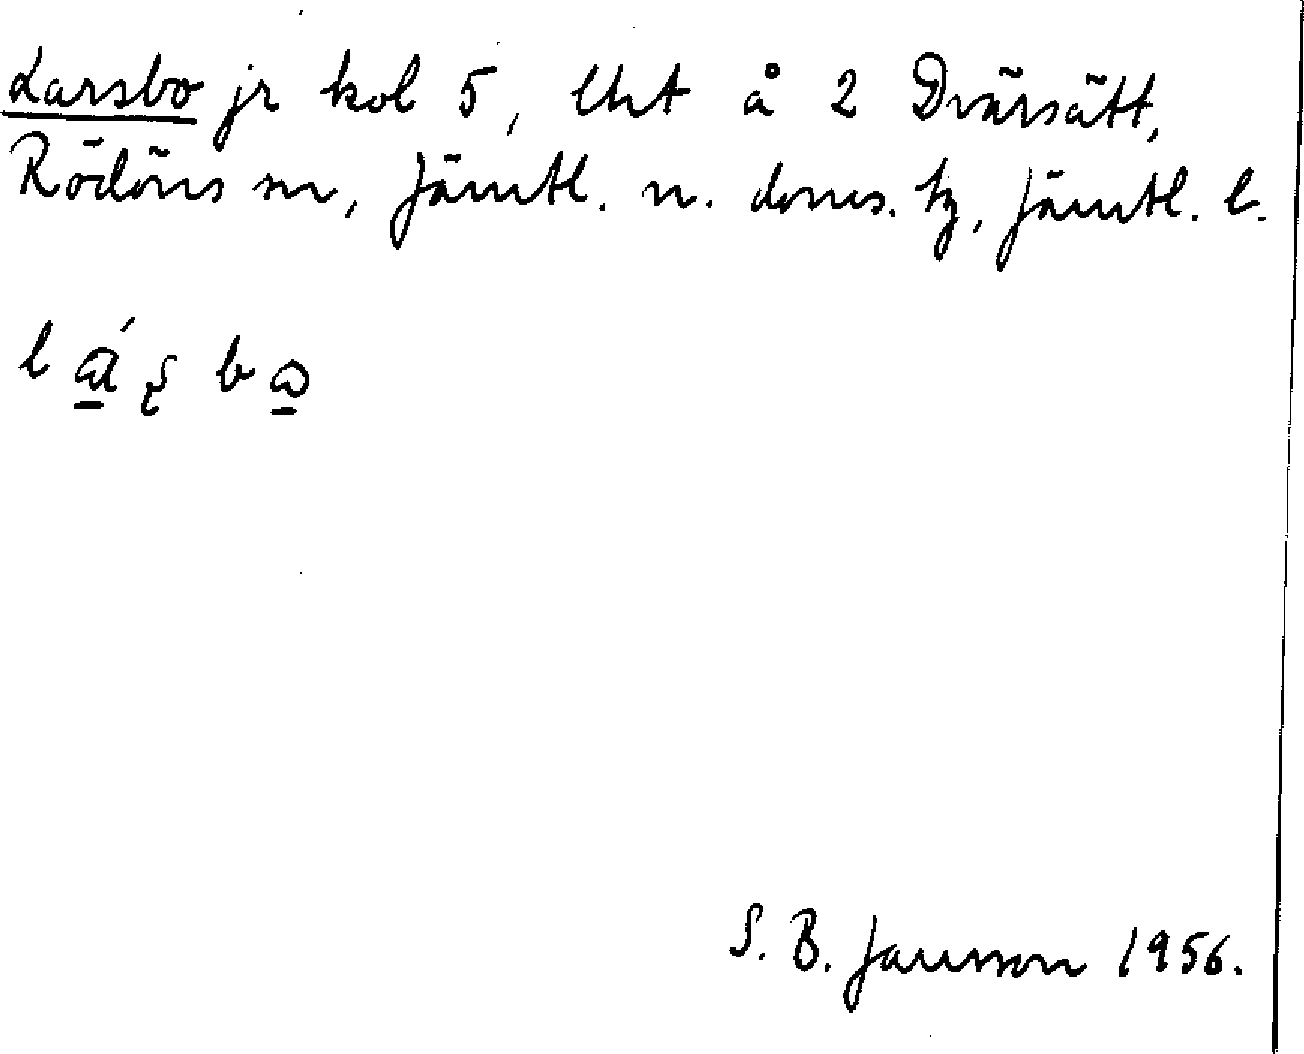 Larsbo jr kol 5, lht å 2 Dvärsätt,
Rödöns sn, Jämtl. n. doms. tg, Jämtl. l.
l á̲ ʂ b ω̲
S. B. Jansson 1956.